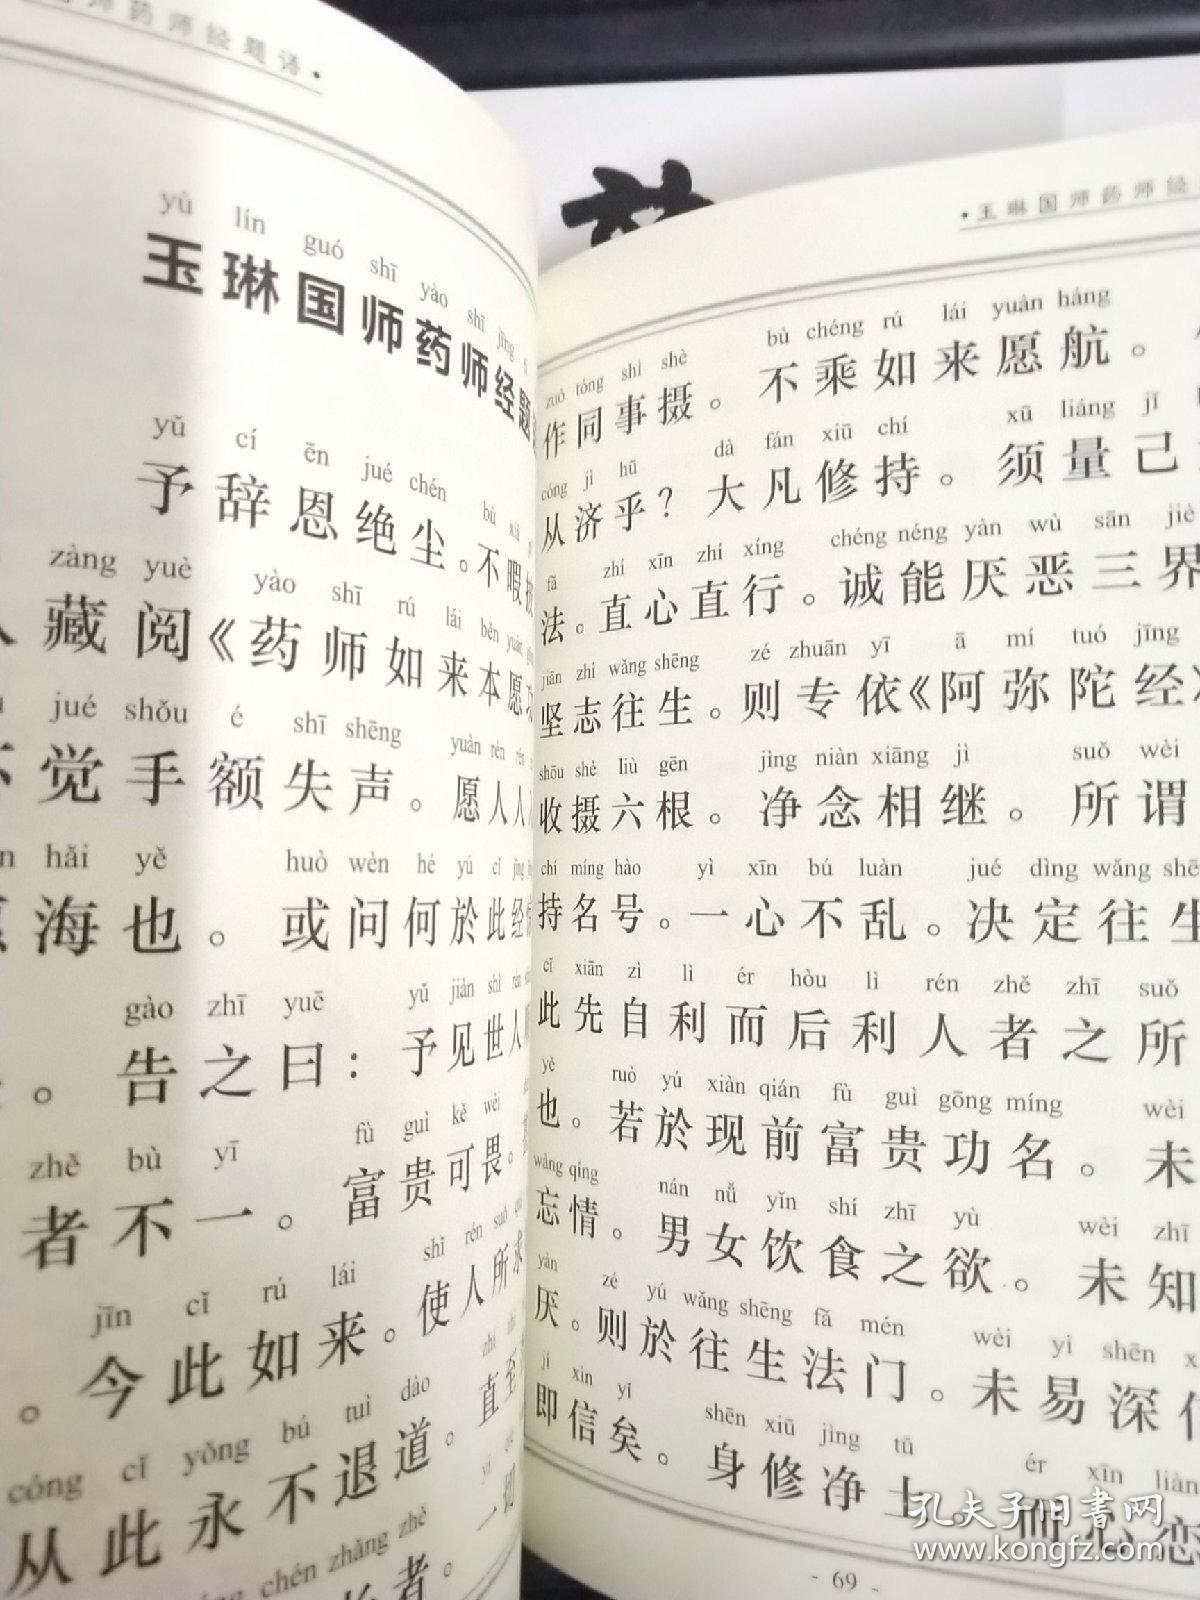 师药师经题语·
yù lín guó shī yào shī jīng
玉琳国师药师经题
yǔ cí ēn jué chén bù xiá
予辞恩绝尘。不暇
zàng yuè yào shī rú lái běn yuàn
藏阅《药师如来本愿功
jué shǒu é shī shēng yuàn rén rén
觉手额失声。愿人人
hǎi yě huò wèn hé yú cǐ jīng
海也。或问何於此经
gào zhī yuē yǔ jiàn shì rén
。告之曰：予见世人
zhě bù yī fù guì kě wèi
者不一。富贵可畏。
jīn cǐ rú lái shǐ rén suǒ qiú
。今此如来。使人所求
cóng cǐ yǒng bú tuì dào zhí zhì
从此永不退道。直至
chén zhǎng zhě yí
长者。一切
·玉琳国师药师经
zuò tóng shì shè bù chéng rú lái yuàn háng
作同事摄。不乘如来愿航。
cóng jì hū dà fán xiū chí xū liáng jǐ
从济乎？大凡修持。须量己
fǎ zhí xīn zhí xíng chéng néng yàn wù sān jiè
法。直心直行。诚能厌恶三界
jiān zhì wǎng shēng zé zhuān yī ā mí tuó jīng
坚志往生。则专依《阿弥陀经》
shōu shè liù gēn jìng niàn xiāng jì suǒ wèi
收摄六根。净念相继。所谓
chí míng hào yì xīn bú luàn jué dìng wǎng shē
持名号。一心不乱。决定往生
cǐ xiān zì lì ér hòu lì rén zhě zhī suǒ
此先自利而后利人者之所
yě ruò yú xiàn qián fù guì gōng míng wèi
也。若於现前富贵功名。未
wàng qíng nán nǚ yǐn shí zhī yù wèi zhī
忘情。男女饮食之欲。未知
yàn zé yú wǎng shēng fǎ mén wèi yì shēn x
厌。则於往生法门。未易深信
jí xìn yǐ shēn xiū jìng tǔ ér xīn liàn
即信矣。身修净土。而心恋
- 69 -
孔夫子旧书网
www.kongfz.com